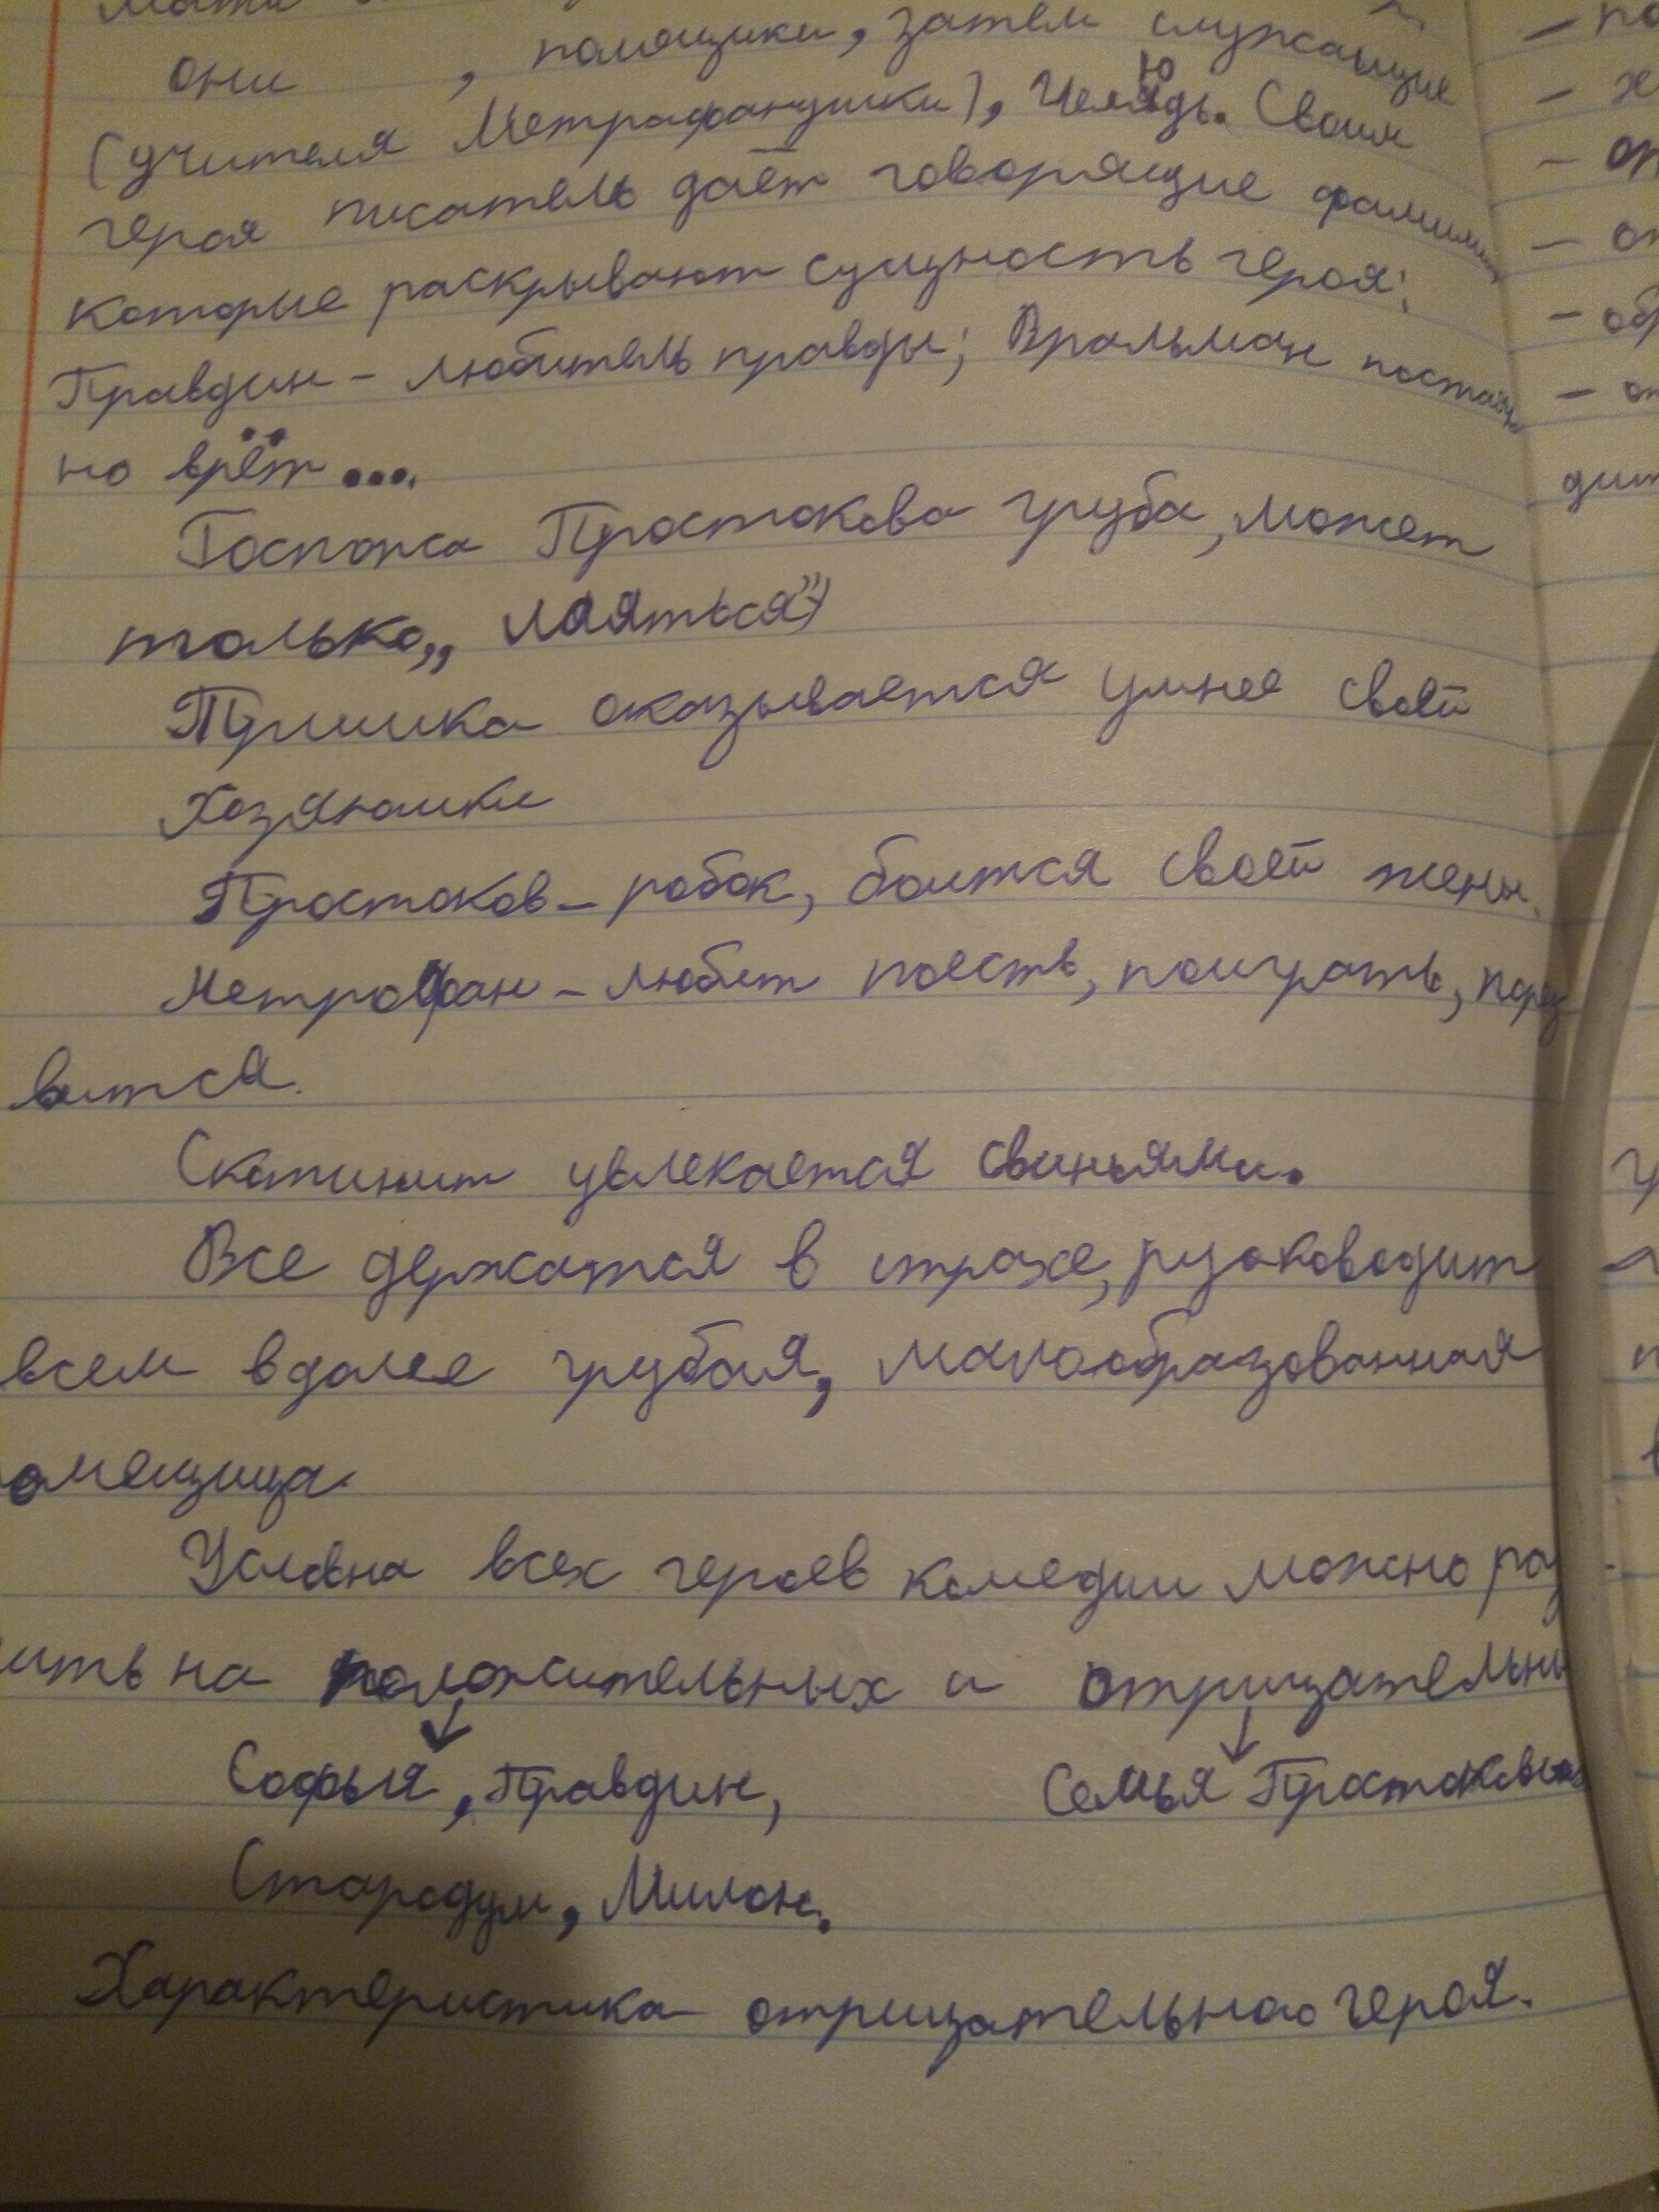 они , помещики, затем служащие
(учителя Метрофанушки), Челядь. Своим
героя писатель даёт говорящие фамилии
которые раскрывают сущность героя:
Правдин - любитель правды; Вральман постоян
но врёт ....
Госпожа Простокова груба, может
только „ лаяться"
Тришка оказывается умнее своей
Хозяюшки
Простоков - робок, боится своей жены.
Метрофан - любит поесть, поиграть, порез
вится.
Скотинит увлекается свиньями.
Все держатся в страхе, руоководит
всем вдалее грубая, малообразованная
омещица.
Условна всех героев комедии можно раз
ить на положительных и отрицательны
Софья, Правдин, Семья Простоковых
Стародум, Милон.
Характеристика отрицательноо героя.